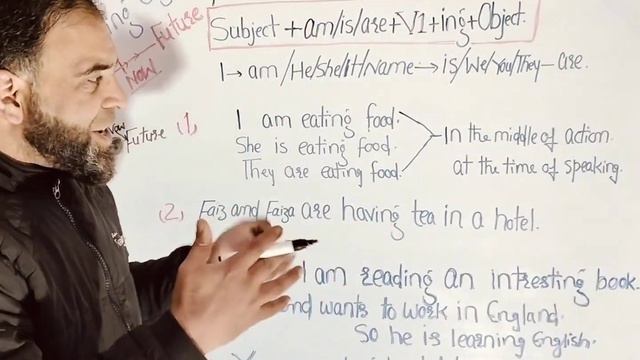 ing
Future
Now
Subject + am/is/are + V1 + ing + Object.
I → am / He/she/It/Name → is/We/You/They → are.
Now
Future
(1) I am eating food.
She is eating food.
They are eating food.
In the middle of action
at the time of speaking.
(2) Faiz and Faiza are having tea in a hotel.
I am reading an intresting book.
and wants to work in England.
So he is learning English.